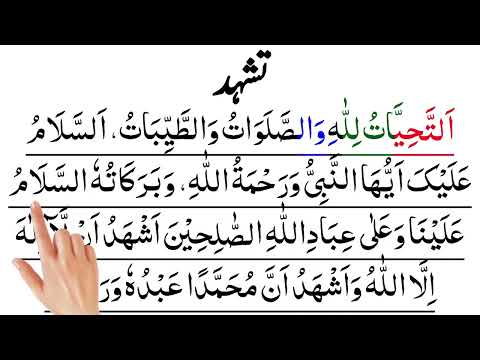 تشہد
اَلتَّحِيَّاتُ لِلّٰهِ وَالصَّلَوَاتُ وَالطَّيِّبَاتُ، اَلسَّلَامُ
عَلَيْكَ اَيُّهَا النَّبِيُّ وَرَحْمَةُ اللّٰهِ، وَبَرَكَاتُهٗ اَلسَّلَامُ
عَلَيْنَا وَعَلٰى عِبَادِ اللّٰهِ الصّٰلِحِيْنَ اَشْهَدُ اَنْ لَّآ اِلٰهَ
اِلَّا اللّٰهُ وَاَشْهَدُ اَنَّ مُحَمَّدًا عَبْدُهٗ